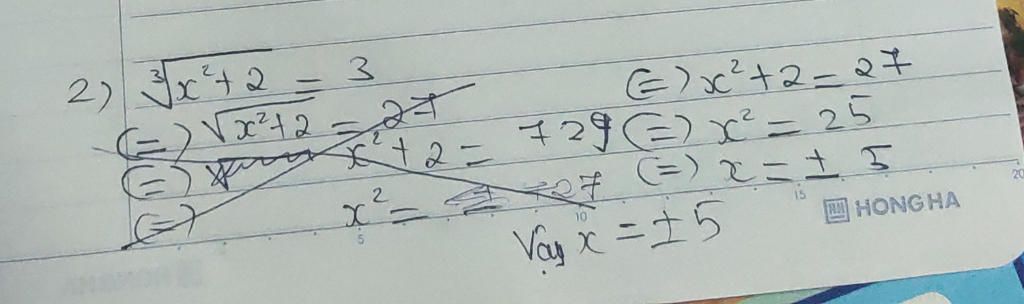 2) ∛(x²+2) = 3
(=) √(x²+2) = 27
(=) x²+2 = 729
(=) x² = 727
(=) x²+2 = 27
(=) x² = 25
(=) x = ± 5
Vậy x = ±5
5 10 15 20
HONG HA